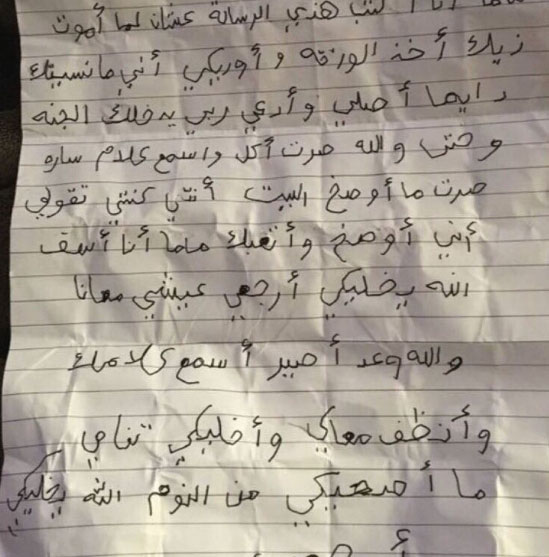 ماما أنا أكتب هذي الرسالة عشان لما أموت
زيك أخذ الورقه وأوريكي أني ما نسيتك
دايما أصلي وأدعي ربي يدخلك الجنه
وحتى والله صرت آكل واسمع كلام ساره
صرت ما أوصخ البيت أنتي كنتي تقولي
أني أوصخ وأتعبك ماما أنا أسف
الله يخليكي أرجعي عيشي معانا
والله وعد أصير أسمع كلامك
وأنظف معاكي وأخليكي تنامي
ما أصحيكي من النوم الله يخليكي